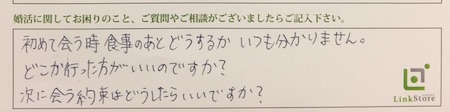 婚活に関してお困りのこと、ご質問やご相談がございましたらご記入下さい。
初めて会う時 食事のあとどうするか いつも分かりません。
どこか行った方がいいのですか？
次に会う約束はどうしたらいいですか？
LinkStore